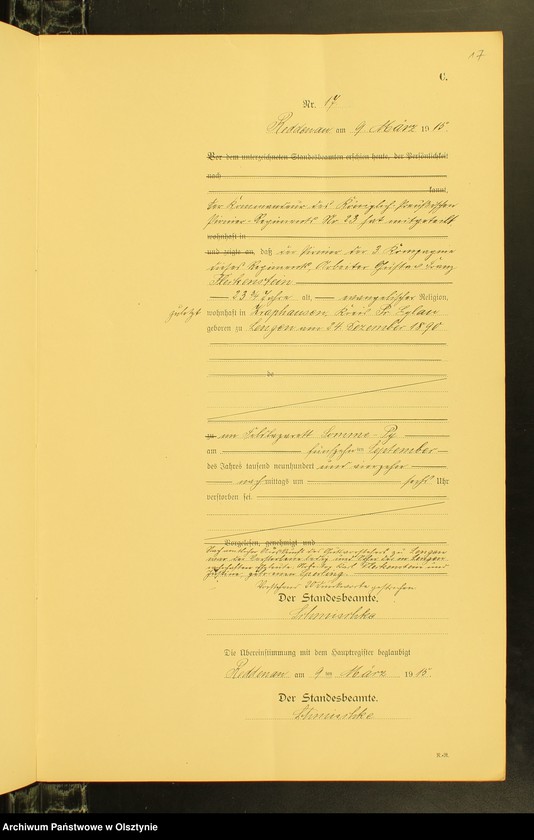 17
C.
Nr. 17
Reddenau am 9 März 1915.
Vor dem unterzeichneten Standesbeamten erschien heute, der Persönlichkeit
nach
kannt,
Der Kommandeur des Königlich Preußischen
Pionier-Regiments Nr 23 hat mitgeteilt
wohnhaft in
und zeigte an, daß der Pionier der 3 Kompagnie
dieses Regiments, Arbeiter Gustav Franz
23 3/4 Jahre alt, evangelischer Religion,
zuletzt wohnhaft in Kraphausen, Kreis Pr. Eylau
geboren zu Lengen am 24 Dezember 1890
de
zu im Feldlazarett Somme-Py
am fünfzehn ten September
des Jahres tausend neunhundert und vierzehn
nachmittags um sechs Uhr
verstorben sei.
Vorgelesen, genehmigt und
Nach amtlicher Auskunft des zu Lengen
war der Verstorbene ledig und Sohn der in Lengen
Eheleute Karl und
geborenen Sperling.
Vorstehend Druckworte gestrichen
Der Standesbeamte.
Schmischke
Die Übereinstimmung mit dem Hauptregister beglaubigt
Reddenau am 9 ten März 1915.
Der Standesbeamte.
Schmischke
Archiwum Państwowe w Olsztynie